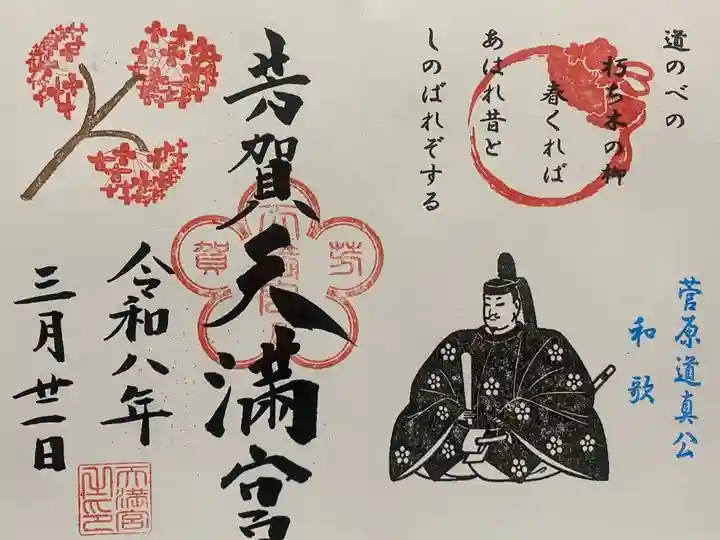 道のべの
朽ち木の柳
春くれば
あはれ昔と
しのばれぞする
菅原道真公
和歌
芳賀天満宮
芳賀
天満宮
令和八年
三月廿一日
天満宮
之印